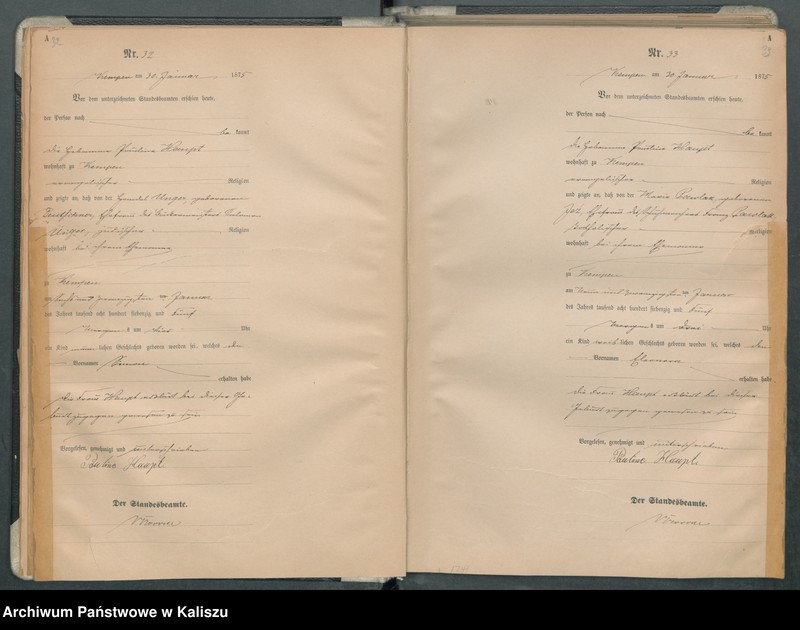 A 32
Nr. 32
Kempen am 30 Januar 1875
Vor dem unterzeichneten Standesbeamten erschien heute,
der Person nach
be kannt
die Hebamme Pauline Haupt
wohnhaft zu Kempen
evangelischer Religion
und zeigte an, daß von der Unger geborenen
Ehefrau des
Unger, jüdischer Religion
wohnhaft bei ihrem Ehemanne
zu Kempen
am und zwanzigsten Januar
des Jahres tausend acht hundert siebenzig und fünf
Morgens um vier Uhr
ein Kind lichen Geschlechts geboren worden sei, welches den
Vornamen
erhalten habe
die Frau Haupt erklärt bei dieser Ge-
burt zugegen gewesen zu sein
Vorgelesen, genehmigt und unterschrieben
Pauline Haupt
Der Standesbeamte.
A 33
Nr. 33
Kempen am 30 Januar 1875
Vor dem unterzeichneten Standesbeamten erschien heute,
der Person nach
be kannt
die Hebamme Pauline Haupt
wohnhaft zu Kempen
evangelischer Religion
und zeigte an, daß von der Maria geborenen
Ehefrau des Franz
katholischer Religion
wohnhaft bei ihrem Ehemanne
zu Kempen
am neun und zwanzigsten Januar
des Jahres tausend acht hundert siebenzig und fünf
Morgens um drei Uhr
ein Kind weib lichen Geschlechts geboren worden sei, welches den
Vornamen Eleonora
erhalten habe
die Frau Haupt erklärt bei dieser
Geburt zugegen gewesen zu sein
Vorgelesen, genehmigt und unterschrieben
Pauline Haupt
Der Standesbeamte.
Archiwum Państwowe w Kaliszu